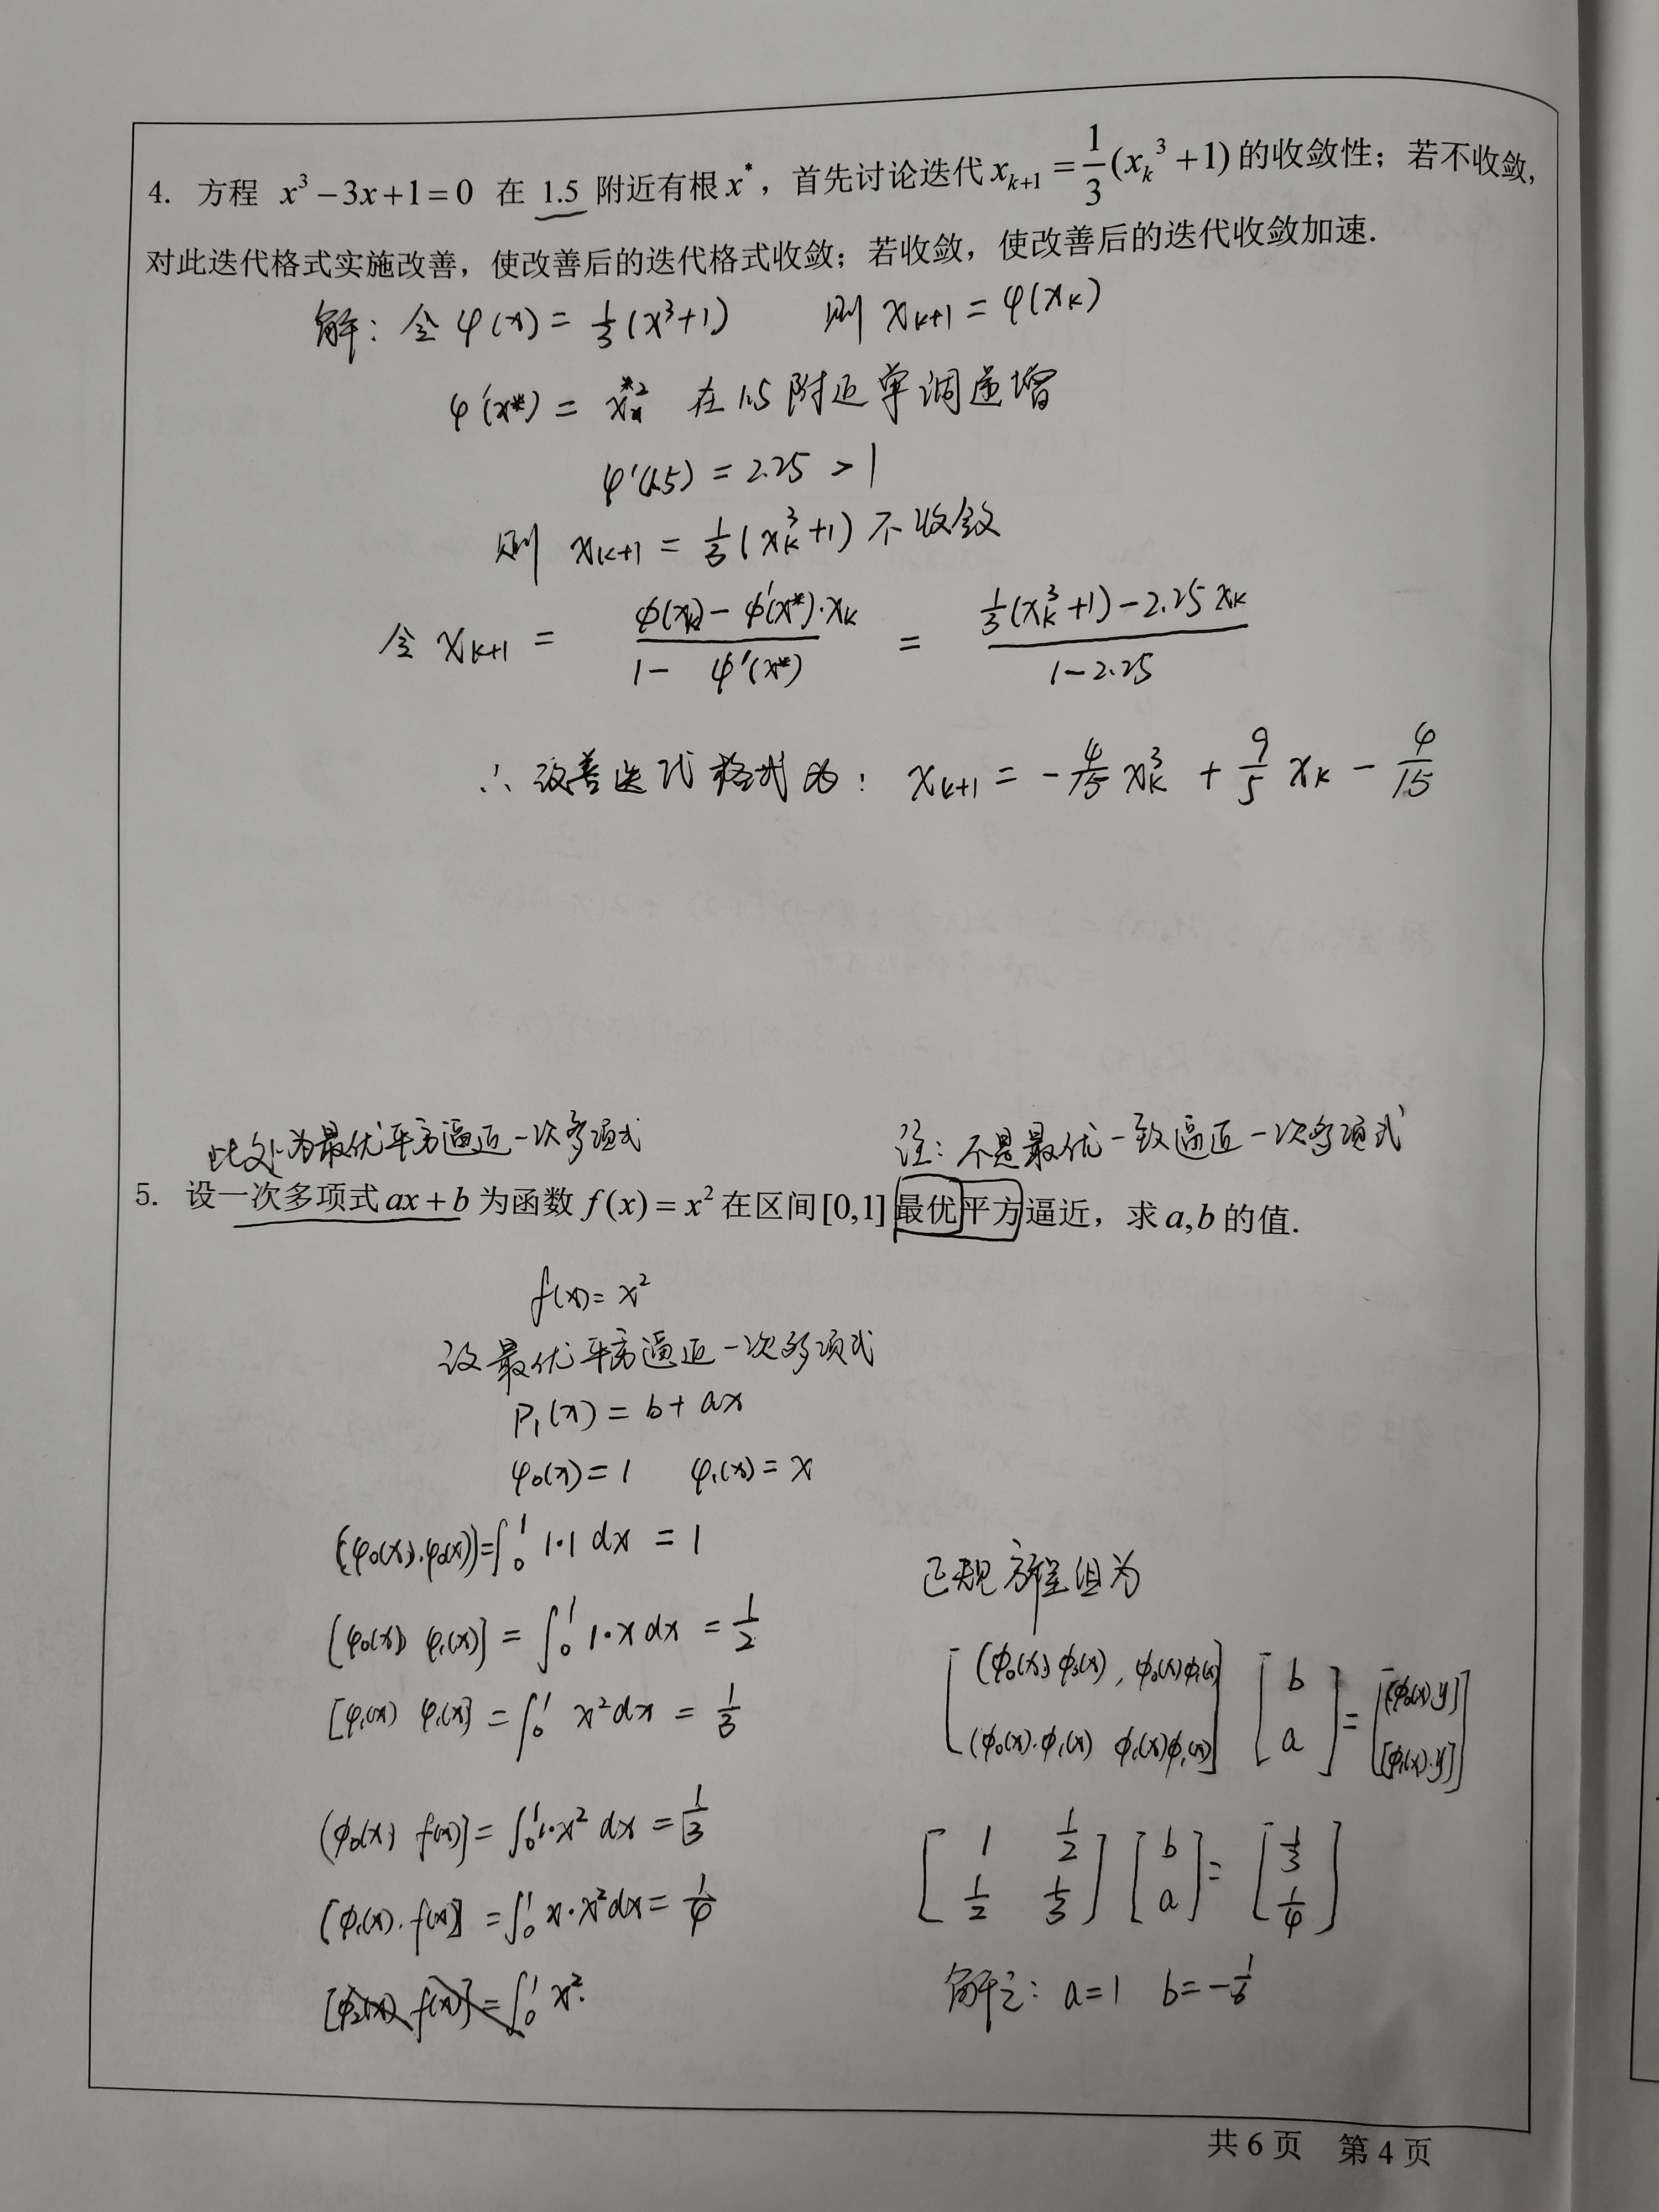 4. 方程 x³−3x+1=0 在 1.5 附近有根 x*，首先讨论迭代 xₖ₊₁ = 1/3(xₖ³+1) 的收敛性；若不收敛，
对此迭代格式实施改善，使改善后的迭代格式收敛；若收敛，使改善后的迭代收敛加速.
解：令 φ(x) = 1/3(x³+1) 则 xₖ₊₁ = φ(xₖ)
φ'(x*) = x*² 在 1.5 附近单调递增
φ'(1.5) = 2.25 > 1
则 xₖ₊₁ = 1/3(xₖ³+1) 不收敛
令 xₖ₊₁ = (φ(xₖ) − φ'(x*)·xₖ)/(1 − φ'(x*)) = (1/3(xₖ³+1) − 2.25xₖ)/(1−2.25)
∴ 改善迭代格式为： xₖ₊₁ = −4/15 xₖ³ + 9/5 xₖ − 4/15
此处为最优平方逼近一次多项式 注：不是最优一致逼近一次多项式
5. 设一次多项式 ax+b 为函数 f(x)=x² 在区间[0,1]最优平方逼近，求 a,b 的值.
f(x)= x²
设最优平方逼近一次多项式
P₁(x) = b + ax
φ₀(x) = 1 φ₁(x) = x
(φ₀(x).φ₀(x))=∫₀¹ 1·1 dx = 1
正规方程组为
[φ₀(x) φ₁(x)] = ∫₀¹ 1·x dx = 1/2
[φ₁(x) φ₁(x)] = ∫₀¹ x²dx = 1/3
[(φ₀(x) φ₀(x), φ₀(x)φ₁(x)] [b] = [[φ₀(x).y]]
[(φ₀(x).φ₁(x) φ₁(x)φ₁(x)] [a] [[φ₁(x).y]]
(φ₀(x) f(x)] = ∫₀¹ 1·x² dx = 1/3
[φ₁(x).f(x)] = ∫₀¹ x·x²dx = 1/4
[1 1/2] [b] = [1/3]
[1/2 1/3] [a] [1/4]
[φ₂(x) f(x)] = ∫₀¹ x²·
解之： a=1 b=−1/6
共 6 页 第 4 页